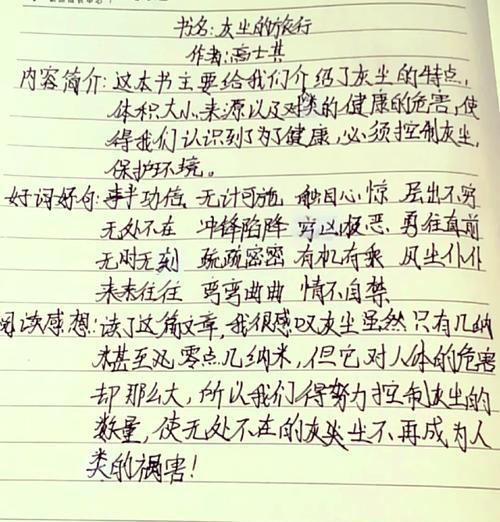 书名:灰尘的旅行
作者:高士其
内容简介:这本书主要给我们介绍了灰尘的特点,
体积大小,来源以及对人类的健康的危害,使
得我们认识到为了健康,必须控制灰尘,
保护环境。
好词好句:事半功倍 无计可施 触目心惊 层出不穷
无处不在 冲锋陷降 穷凶极恶 勇往直前
无时无刻 疏疏密密 有机可乘 风尘仆仆
来来往往 弯弯曲曲 情不自禁
阅读感想:读了这篇文章,我很感叹灰尘虽然只有几纳
米甚至零点几纳米,但它对人体的危害
却那么大,所以我们得努力控制灰尘的
数量,使无处不在的灰尘不再成为人
类的祸害!